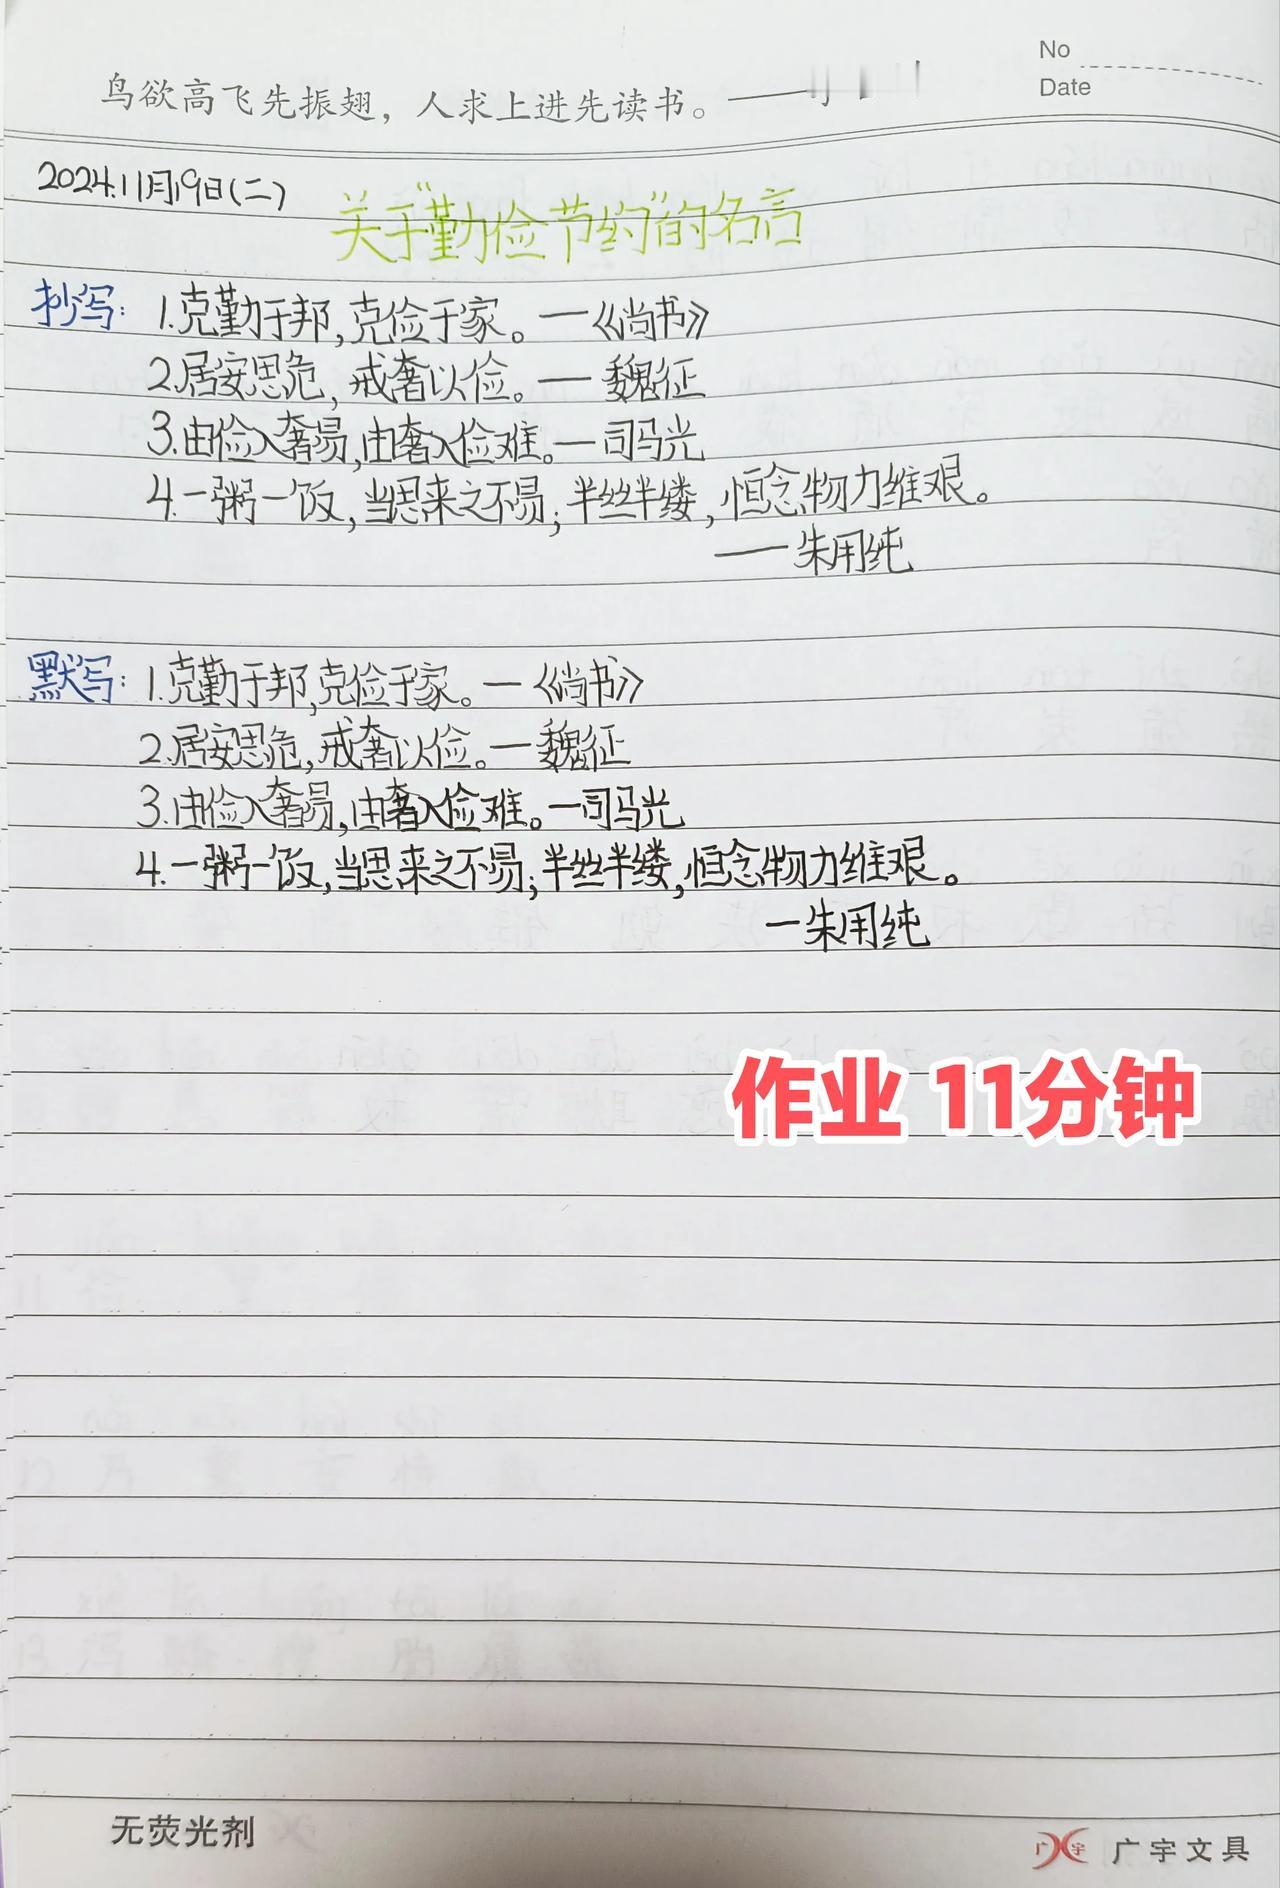 No
Date
鸟欲高飞先振翅，人求上进先读书。——
2024.11月19日(二)
关于“勤俭节约”的名言
抄写：1.克勤于邦,克俭于家。—《尚书》
2.居安思危，戒奢以俭。— 魏征
3.由俭入奢易,由奢入俭难。— 司马光
4.一粥一饭，当思来之不易；半丝半缕，恒念物力维艰。
——朱用纯
默写：1.克勤于邦,克俭于家。—《尚书》
2.居安思危,戒奢以俭。—魏征
3.由俭入奢易,由奢入俭难。—司马光
4.一粥一饭,当思来之不易;半丝半缕,恒念物力维艰。
—朱用纯
作业 11分钟
无荧光剂
广宇
广宇文具